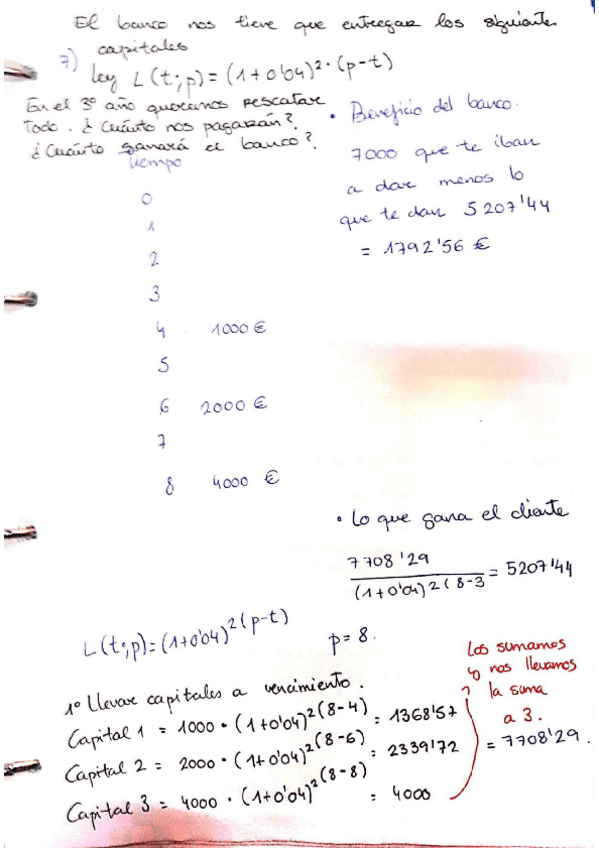 El banco nos tiene que entregar los siguiente
capitales
7) ley L(t;p) = (1+0'04)²·(p-t)
En el 3º año queremos rescatar
todo. ¿Cuánto nos pagarán?
¿Cuánto ganará el banco?
tiempo
0
1
2
3
4 1000 €
5
6 2000 €
7
8 4000 €
• Beneficio del banco.
7000 que te iban
a dar menos lo
que te dan 5207'44
= 1792'56 €
• Lo que gana el cliente
7708'29
(1+0'04)2(8-3 = 5207'44
L(t;p)=(1+0'04)^2(p-t) p=8.
1º Llevar capitales a vencimiento.
Capital 1 = 1000 · (1+0'04)^2(8-4) = 1368'57
Capital 2 = 2000 · (1+0'04)^2(8-6) = 2339'72
Capital 3 = 4000 · (1+0'04)^2(8-8) = 4000
Los sumamos
y nos llevamos
la suma
a 3.
= 7708'29.